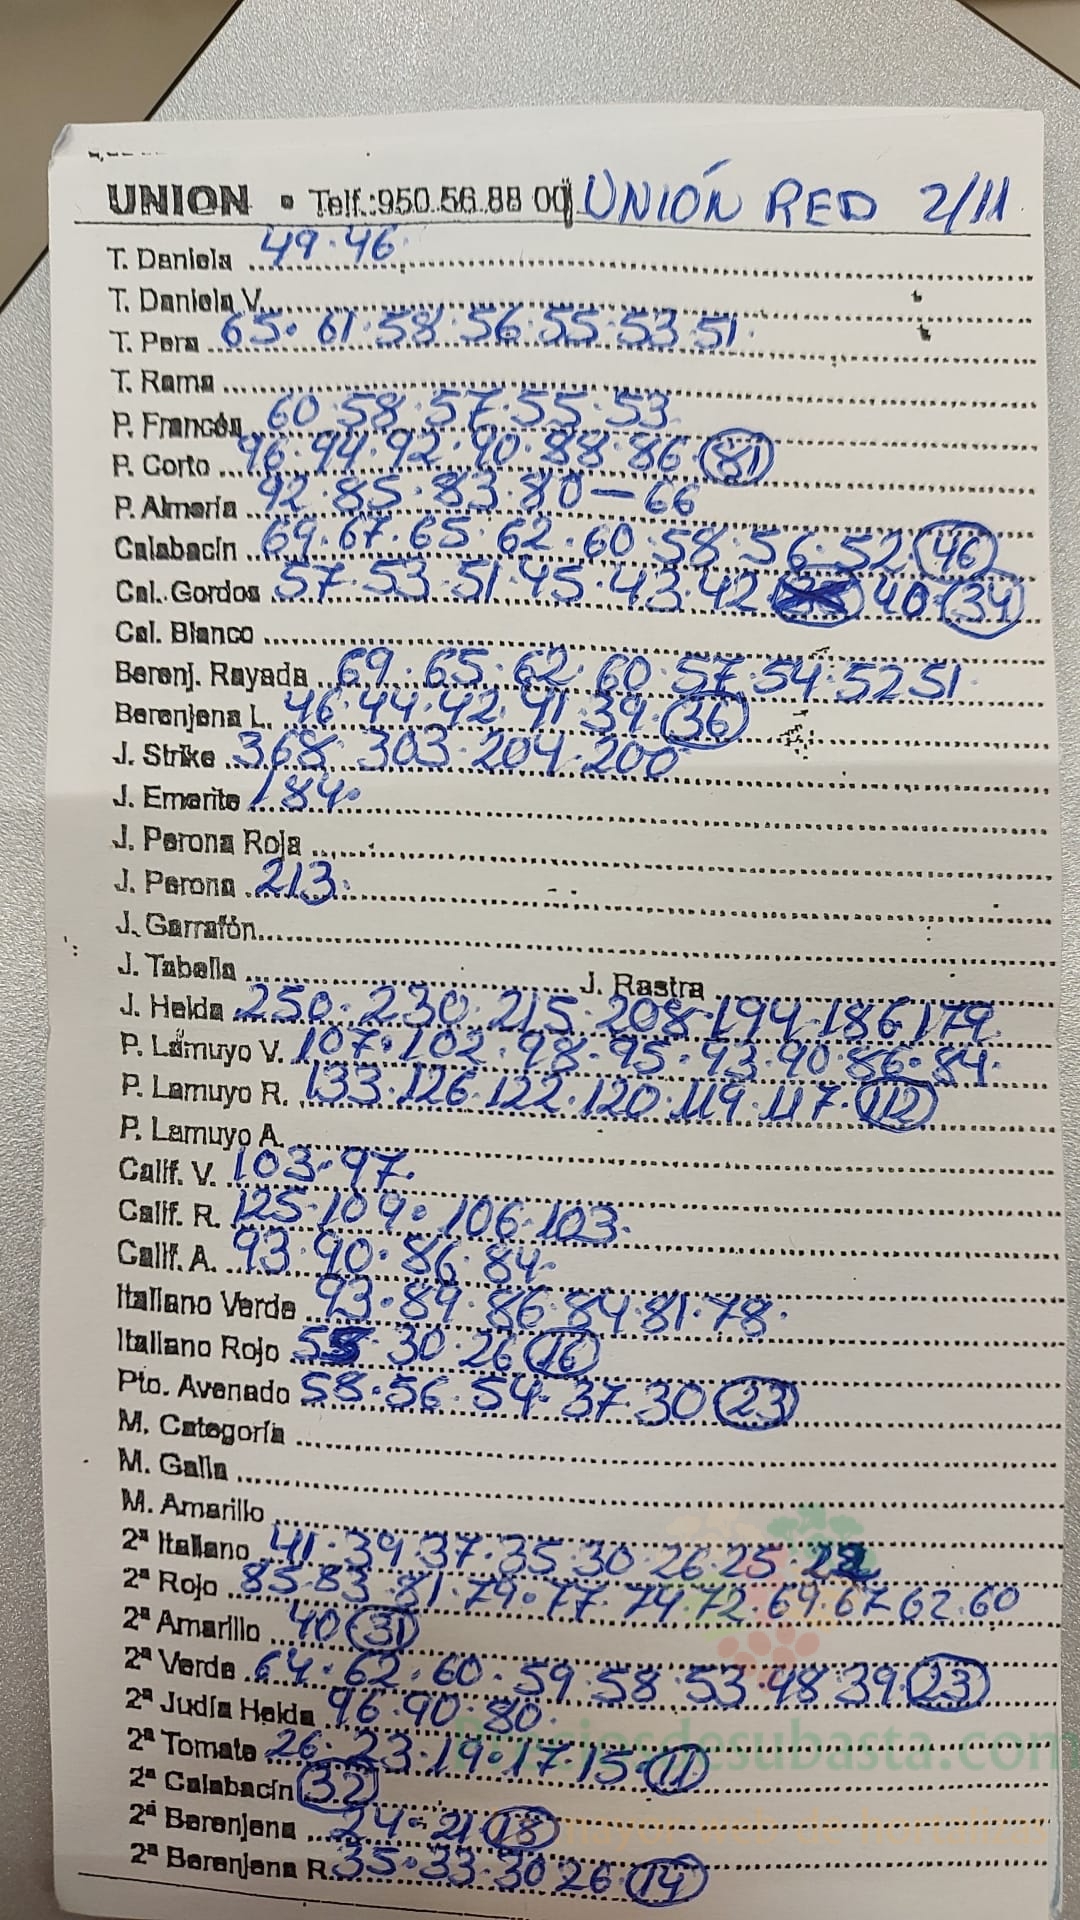 UNION • Telf.:950.56.88 00 UNIÓN RED 2/11
T. Daniela 49·46·
T. Daniela V.
T. Pera 65·61·58·56·55·53·51·
T. Rama
P. Francés 60·58·57·55·53
P. Corto 96·94·92·90·88·86·81
P. Almería 92·85·83·80—66
Calabacín 69·67·65·62·60·58·56·52·46
Cal. Gordos 57·53·51·45·43·42 40·34
Cal. Blanco
Berenj. Rayada 69·65·62·60·57·54·52 51·
Berenjena L. 46·44·42·41·39·36
J. Strike 368·303·204·200
J. Emerite 184·
J. Perona Roja
J. Perona 213·
J. Garrafón
J. Tabella J. Rastra
J. Helda 250·230·215·208·194·186 179
P. Lamuyo V. 107·102·98·95·93·90·86·84·
P. Lamuyo R. 133·126·122·120·119·117·112
P. Lamuyo A.
Calif. V. 103·97·
Calif. R. 125·109·106·103·
Calif. A. 93·90·86·84·
Italiano Verde 93·89·86·84·81·78·
Italiano Rojo 30·26 16
Pto. Avenado 58·56·54·37·30 23
M. Categoría
M. Galla
M. Amarillo
2ª Italiano 41·39 37·35·30·26·25·
2ª Rojo 85·83·81·79·77·74·72·69·67 62·60
2ª Amarillo 40 31
2ª Verde 64·62·60·59·58·53·48 39·23
2ª Judía Helda 96·90·80·
2ª Tomate 26·23·19·17·15·11
2ª Calabacín 32
2ª Berenjena 24·21 18
2ª Berenjena R. 35·33·30 26·14
Preciosdesubasta.com
mayor web de hortalizas